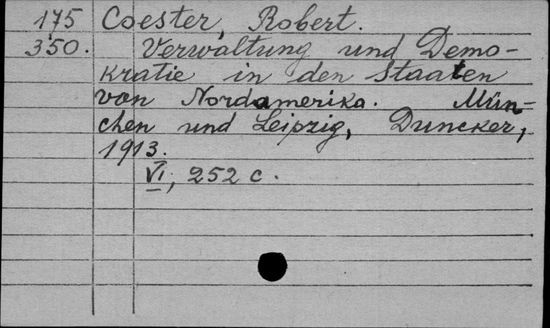 175 Coester, Robert.
350. Verwaltung und Demo-
kratie in den Staaten
von Nordamerika. Mün-
chen und Leipzig, Duncker,
1913.
VI, 252 c.